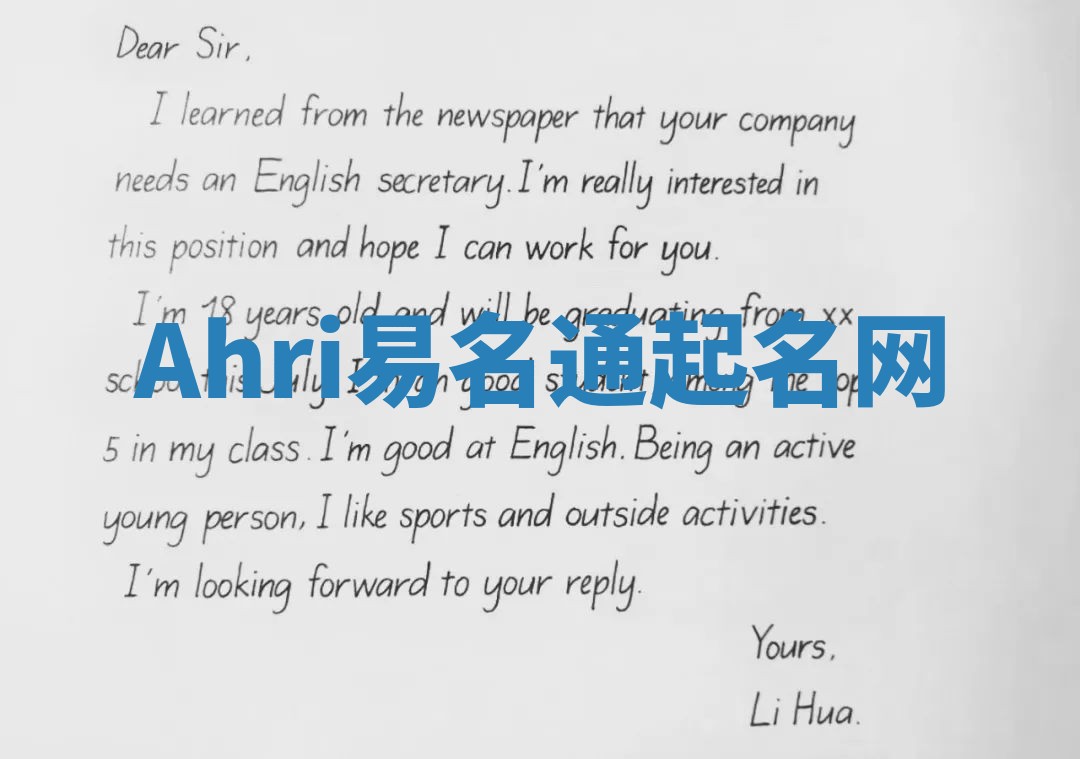 Dear Sir,
I learned from the newspaper that your company
needs an English secretary. I'm really interested in
this position and hope I can work for you.
I'm 18 years old and will be graduating from xx
Ahri易名通起名网
school this July. I good student among the top
5 in my class. I'm good at English. Being an active
young person, I like sports and outside activities.
I'm looking forward to your reply.
Yours,
Li Hua.